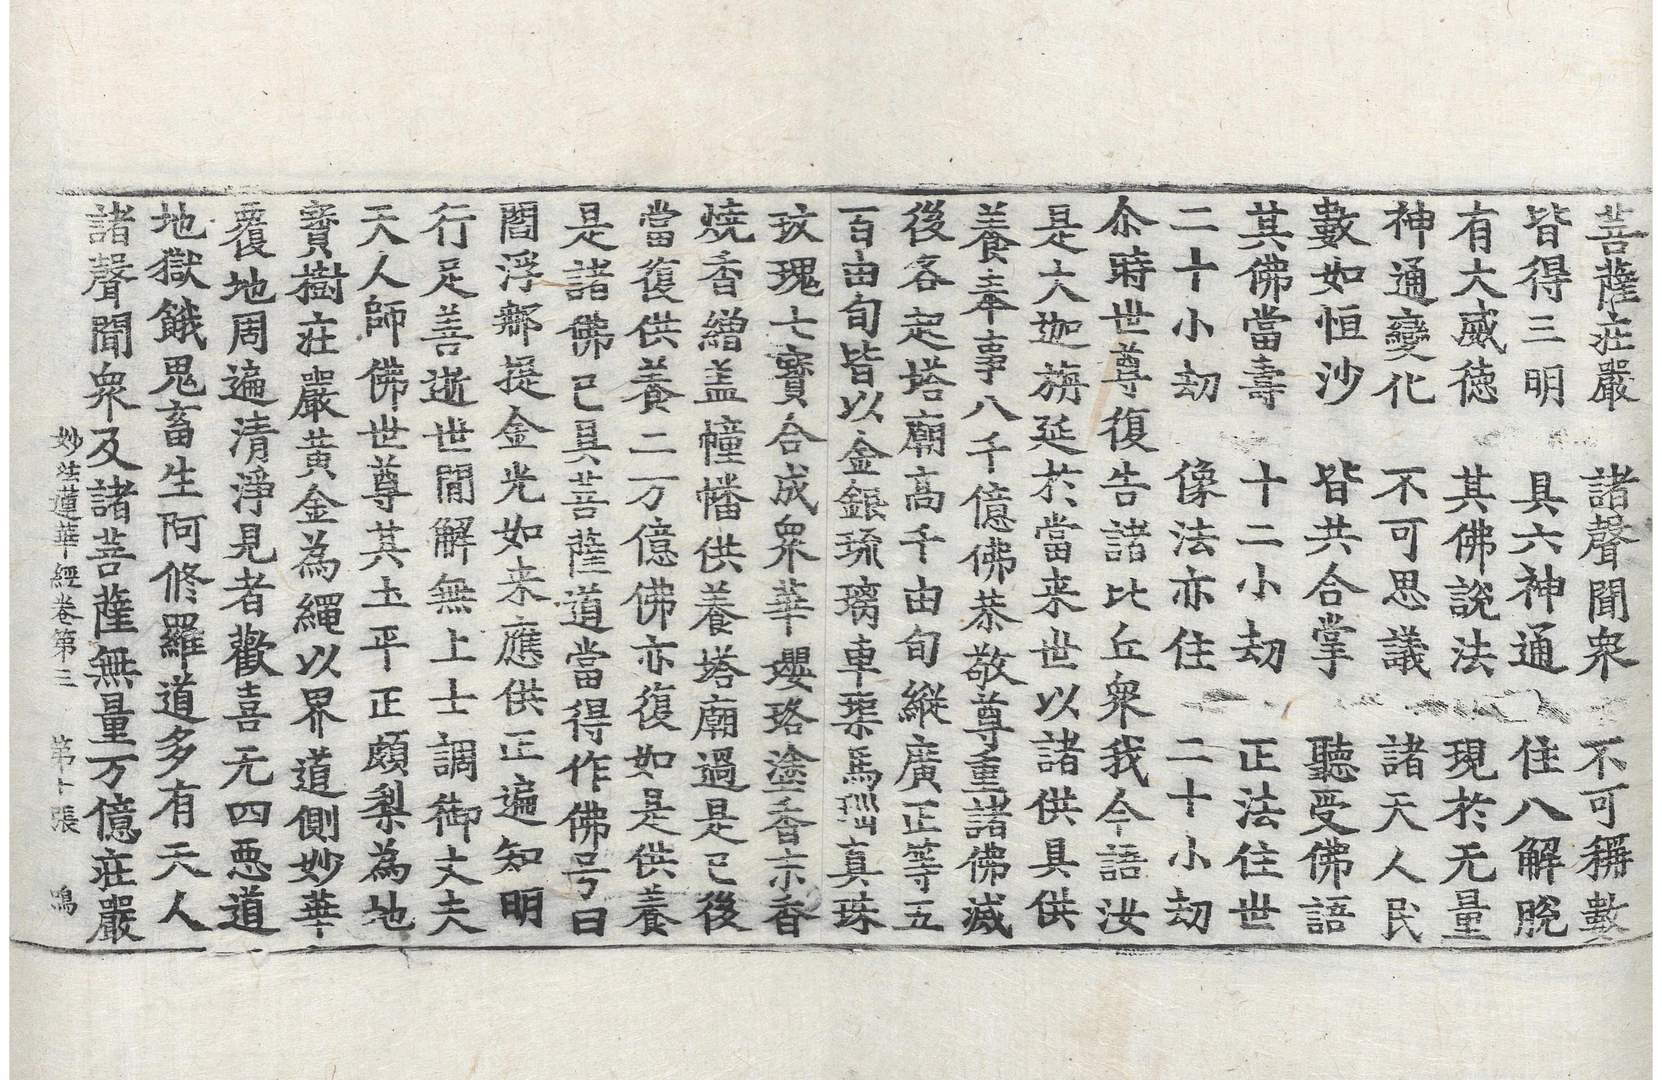 菩薩莊嚴　諸聲聞衆　不可稱數
皆得三明　具六神通　住八解脫
有大威德　其佛說法　現於无量
神通變化　不可思議　諸天人民
數如恒沙　皆共合掌　聽受佛語
其佛當壽　十二小劫　正法住世
二十小劫　像法亦住　二十小劫
尒時世尊復告諸比丘衆我今語汝
是大迦旃延於當来世以諸供具供
養奉事八千億佛恭敬尊重諸佛滅
後各起塔廟高千由旬縱廣正等五
百由旬皆以金銀琉璃車璖馬瑙真珠
玫瑰七寶合成衆華瓔珞塗香末香
燒香繒盖幢幡供養塔廟過是已後
當復供養二万億佛亦復如是供養
是諸佛已具菩薩道當得作佛号曰
閻浮郍提金光如来應供正遍知明
行足善逝世閒解無上士調御丈夫
天人師佛世尊其土平正頗梨為地
寶樹莊嚴黃金為繩以界道側妙華
覆地周遍清淨見者歡喜无四悪道
地獄餓鬼畜生阿修羅道多有天人
諸聲聞衆及諸菩薩無量万億莊嚴
妙法蓮華經卷第三　第十張　鳴